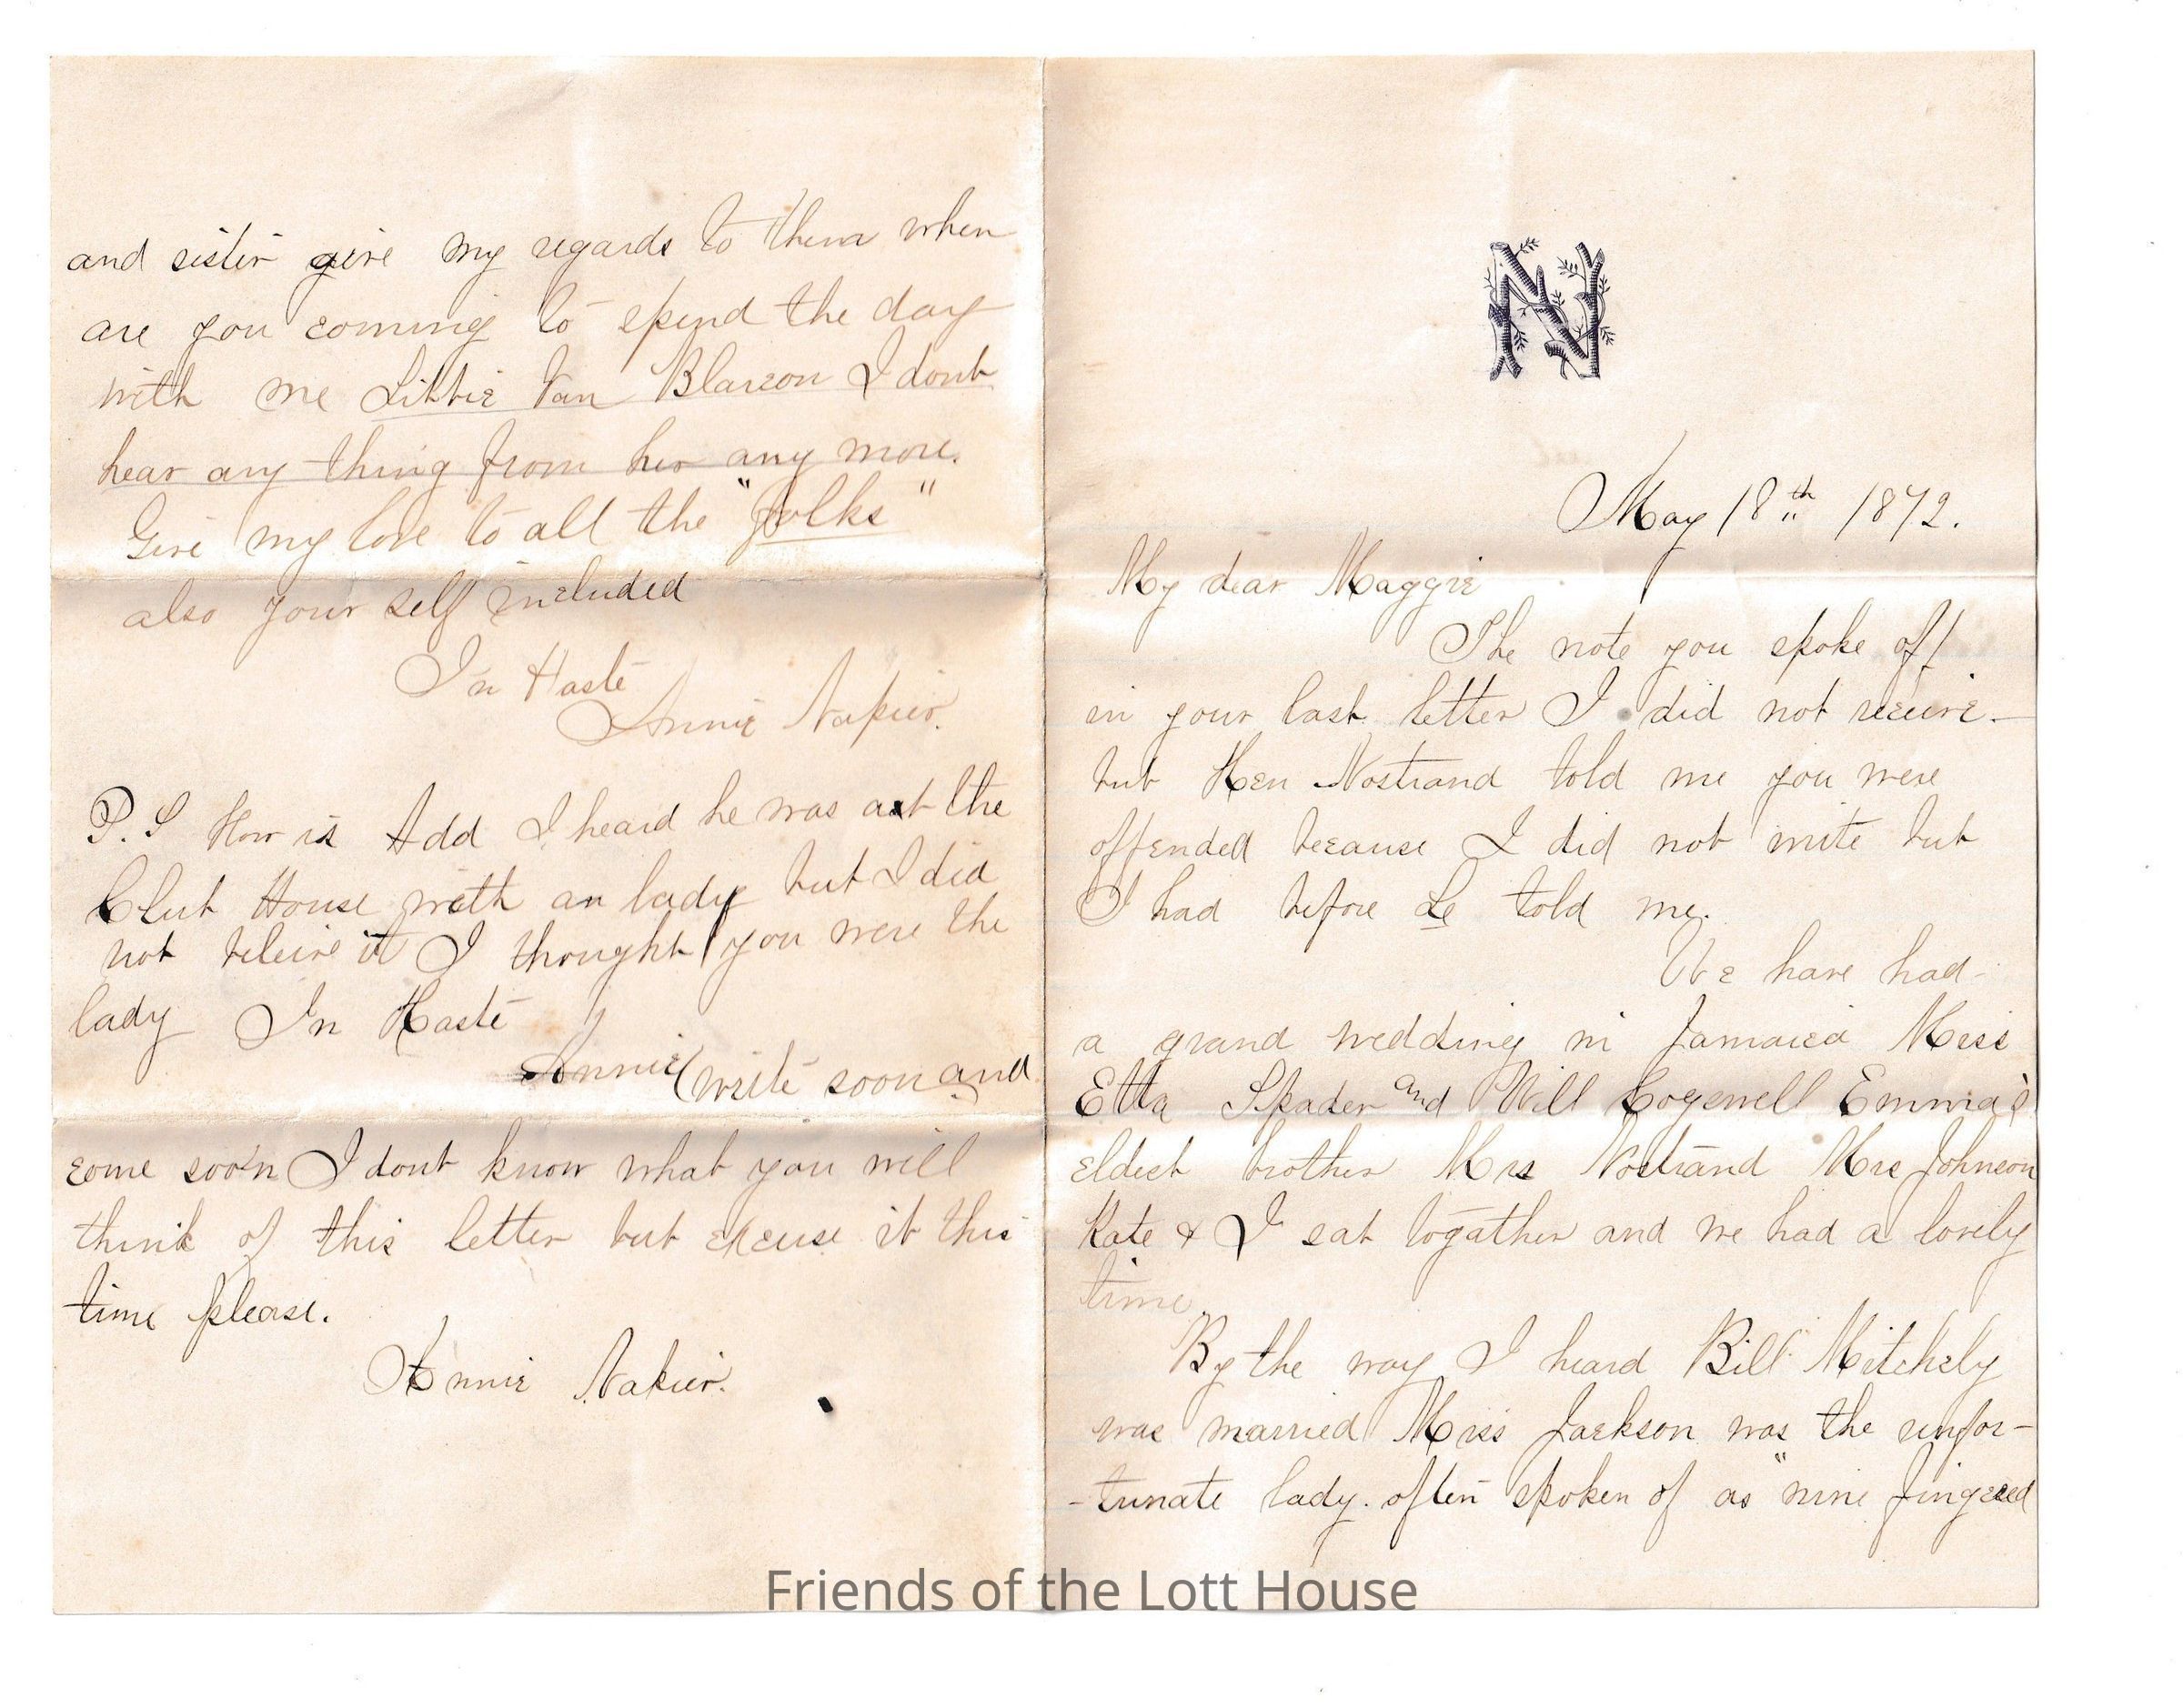 N
May 18th 1872.
My dear Maggie
The note you spoke off
in your last letter I did not receive
but Hen Nostrand told me you were
offended because I did not write but
I had before Le told me.
We have had
a grand wedding in Jamaica Miss
Etta Spader and Will Cogswell Emma's
eldest brother Mrs Nostrand Mrs Johnson
Kate & I sat togather and we had a lovely
time.
By the way I heard Bill Mitchely
was married Miss Jackson was the unfor-
-tunate lady. often spoken of as "nine fingered
and sister give my regards to them when
are you coming to spend the day
with me Libbie Van Blarcon I dont
hear any thing from her any more.
Give my love to all the "folks"
also your self included
In Haste
Annie Napier.
P.S How is Add I heard he was at the
Club House with an lady but I did
not beleive it I thought you were the
lady In Haste
Annie (write soon and
come soon I dont know what you will
think of this letter but excuse it this
time please.
Annie Napier.
Friends of the Lott House